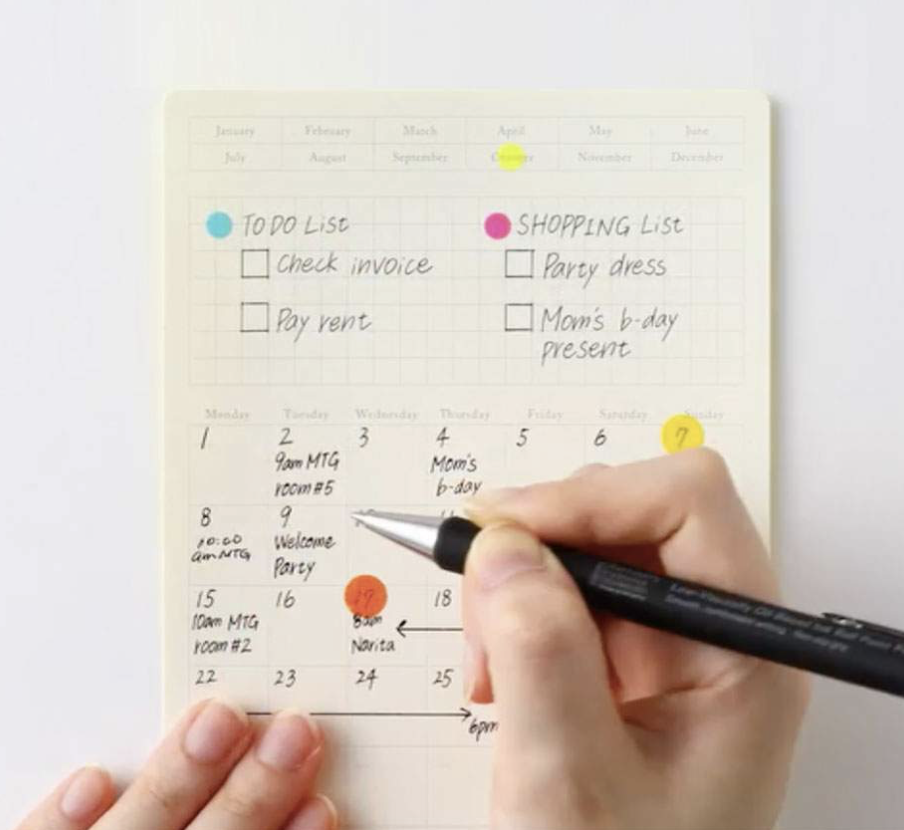 January February March April May June
July August September October November December
TO DO List
Check invoice
Pay rent
SHOPPING List
Party dress
Mom's b-day
present
Monday Tuesday Wednesday Thursday Friday Saturday Sunday
1 2 3 4 5 6 7
9am MTG Mom's
room #5 b-day
8 9
10:00 Welcome
am MTG Party
15 16 17 18
10am MTG 8am
room #2 Narita
22 23 24 25
6pm